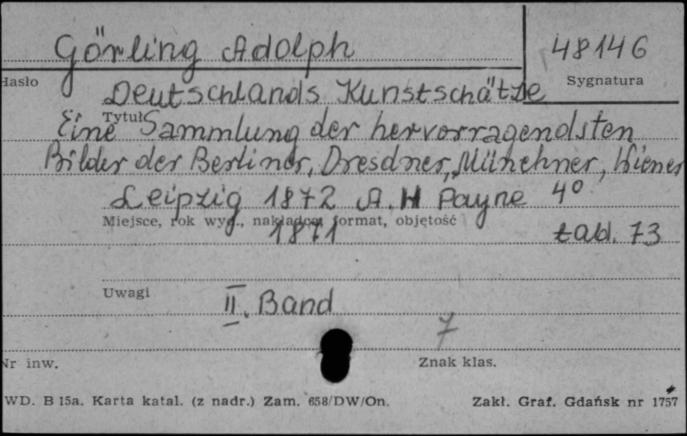 Görling Adolph 48146
Hasło Sygnatura
Deutschlands Kunstschätze
Tytuł
Eine Sammlung der hervorragendsten
Bilder der Berliner, Dresdner, Münchner, Wiener
Leipzig 1872 A. H Payne 4°
Miejsce, rok wyd., nakładca, format, objętość
1871 tabl. 73
Uwagi
II. Band
7
Nr inw. Znak klas.
WD. B 15a. Karta katal. (z nadr.) Zam. 658/DW/On. Zakł. Graf. Gdańsk nr 1757